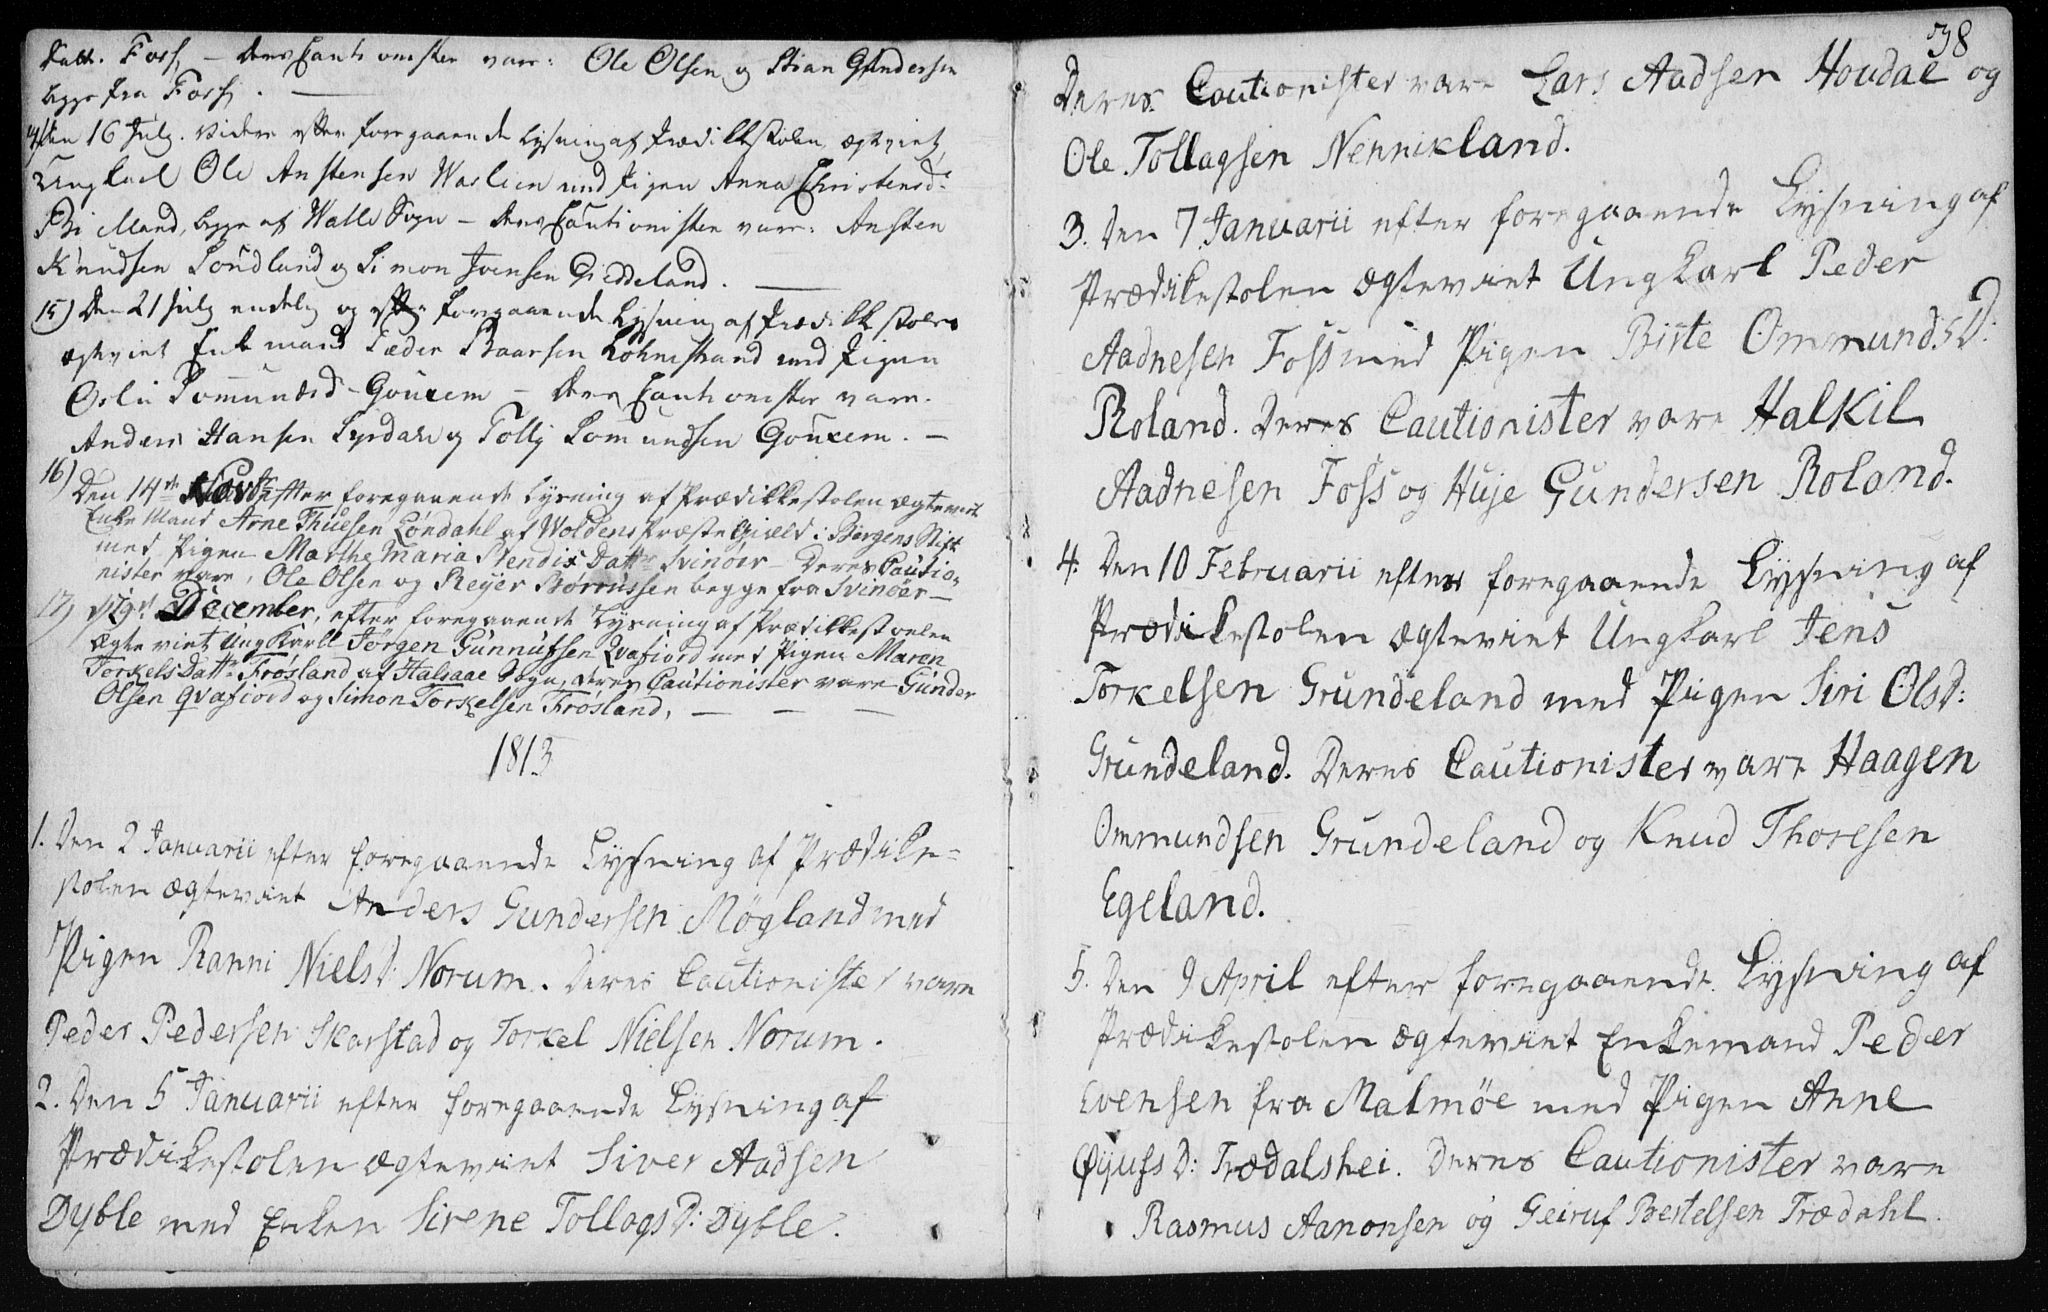 Datt. Foss, – deres Cautionister vare: Ole Olsen og Stian Gundersen
begge fra Foss. —
14) Den 16 July. videre efter foregaaende Lysning af Prædikkestolen ægteviet
Ungkarl Ole Anstensen Waslien med Pigen Anna Christensd:
af Walle Sogn – deres Cautionister vare: Ansten
Knudsen Loudland og Simon Ivensen Gieddeland. —
15) Den 21 July endelig og efter foregaaende Lysning af Prædikkestolen
ægteviet Enkemand Peder Baarsen Lohnestrand med Pigen
Oslu Lomunds d. Gouxem – deres Cautionister vare.
Anders Hansen Lyrdahl og Tollj Lomundsen Gouxem. –
16) Den 14de Novbr efter foregaaende Lysning af Prædikkestolen ægteviet
Enke Mand Arne Thuesen Løndahl af Woldens Præste Gield i Bergens Stift
med Pigen Marthe Maria Stendix Datter Svinöer – Deres Cautio-
nister vare, Ole Olsen og Reyer Børrussen begge fra Svinöer –
17) 19de December, efter foregaaende Lysning af Prædikkestoelen
Ægte viet Ung Karll Jørgen Gunnufsen Qvafiord med Pigen Maren
Torkels Datter Frøsland af Halsaae Sogn, deres Cautionister vare Gunder
Olsen Qvafiord og Simon Torkelsen Frøsland, — — —
1813
1. Den 2 Januarii efter foregaaende Lysning af Prædike=
stolen ægteviet Anders Gundersen Møgland med
Pigen Ranni Niels D: Norum. Deres Cautionister vare
Peder Pedersen Skarstad og Torkel Nielsen Norum.
2. Den 5 Januarii efter foregaaende Lysning af
Prædikestolen ægteviet Siver Aadsen
Dyble med Enken Sirene Tollags D: Dyble.
38
Deres Cautionister vare Lars Aadsen Houdal og
Ole Tollagsen Nennikland.
3. Den 7 Januarii efter foregaaende Lysning af
Prædikestolen ægteviet Ungkarl Peder
Aadnesen Foss med Pigen Birte Ommunds D:
Roland. Deres Cautionister vare Halkil
Aadnesen Foss og Huje Gundersen Roland.
4. Den 10 Februarii efter foregaaende Lysning af
Prædikestolen ægteviet Ungkarl Jens
Torkelsen Grundeland med Pigen Siri Ols D:
Grundeland. Deres Cautionister vare Haagen
Ommundsen Grundeland og Knud Thoresen
Egeland.
5. Den 9 April efter foregaaende Lysning af
Prædikestolen ægteviet Enkemand Peder
Evensen fra Malmöe med Pigen Anne
Øyufs D: Trædalshei. Deres Cautionister vare
Rasmus Aanonsen og Geiruf Bertelsen Trædahl.